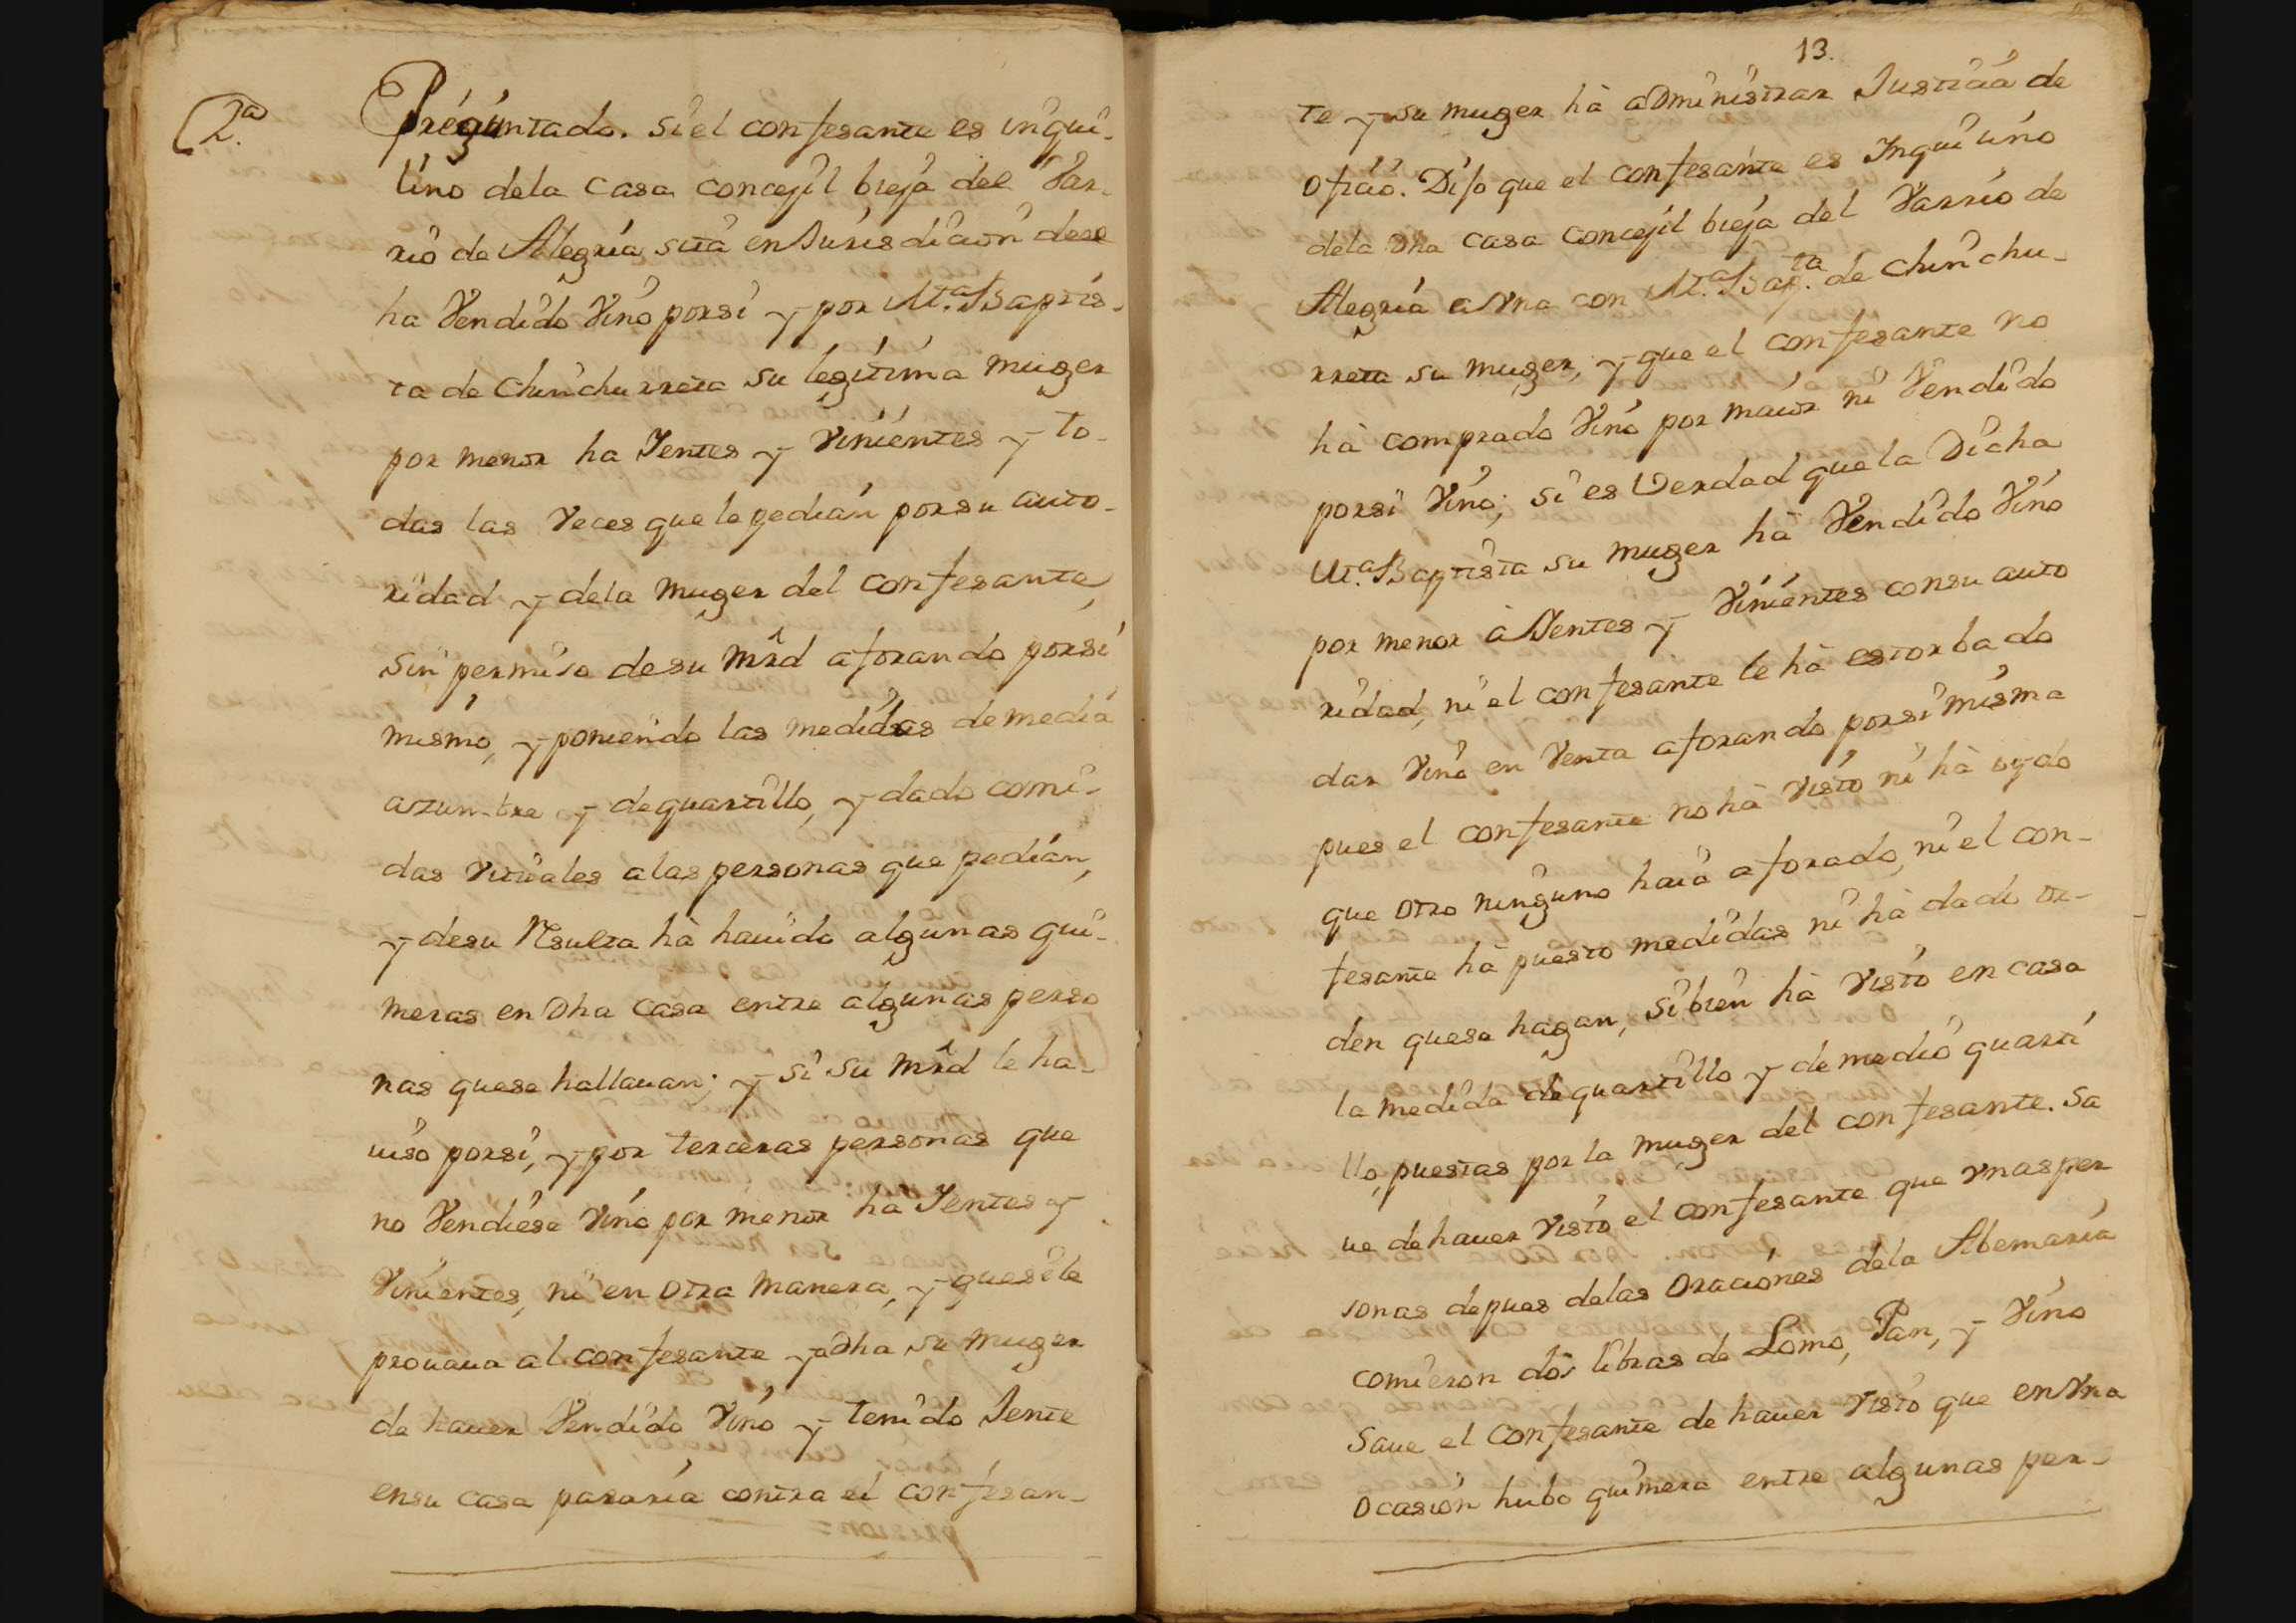 2ª.
Preguntado. Si el confesante es inqui-
lino dela Casa concejil bieja del Var-
rio de Alegria sita en Jurisdicion dese
ha Vendido Vino porsi y por Mª. Baptis-
ta de Chinchurreta su legitima muger
por menor ha Jentes y Vinientes y to-
das las Veces que le pedian porsu auto-
ridad y dela muger del confesante,
sin permiso desu mrd aforando porsi
mismo, y poniendo las medidas de media
azumbre y de quartillo, y dado comi-
das Vituales alas personas que pedian,
y desu Resulta hà hauido algunas qui-
meras en Dha Casa entre algunas perso
nas quese hallauan; y si su mrd le ha-
uiso porsi, y por terceras personas que
no Vendiese Vino por menor ha Jentes y
Vinientes, ni en otra manera, y quesile
prouaua al confesante y a Dha su muger
de hauer Vendido Vino y tenido Jente
ensu casa pasaria contra el confesan-
13.
te y su muger hà administrar Justicia de
oficio. Dijo que el confesante es Inquilino
dela Dha Casa concejil bieja del Varrio de
Alegria a Vna con Mª. Bap.ta de Chinchu-
rreta su muger; y que el confesante no
hà comprado Vino por maior ni Vendido
porsi Vino; si es Verdad quela Dicha
Mª. Baptista su muger hà Vendido Vino
por menor à Jentes y Vinientes consu auto
ridad, ni el confesante le hà estorbado
dar Vino en Venta aforando porsi misma
pues el confesante no hà Visto ni hà oydo
que otro ninguno haia aforado, ni el con-
fesante hà puesto medidas ni hà dado or-
den quese hagan, si bien hà Visto en casa
la medida de quartillo y de medio quarti
llo, puestas por la muger del confesante. Sa
ue de hauer Visto el confesante que Vnas per
sonas depues delas Oraciones dela Abemaria
comieron dos libras de Lomo, Pan, y Vino
Saue el Confesante de hauer Visto que en Vna
Ocasion hubo quimera entre algunas per-